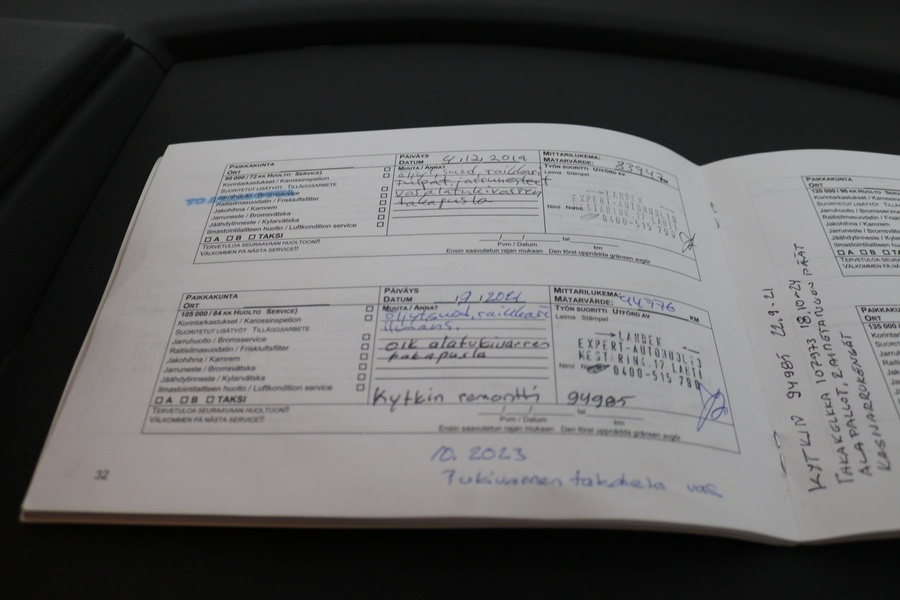 PAIKKAKUNTA
ORT
PÄIVÄYS
DATUM 4.12.2019
MITTARILUKEMA:
MÄTARVÄRDE:
KM
90 000 / 72 KK HUOLTO SERVICE)
Korintarkastukset / Karossinspektion
SUORITETUT LISÄTYÖT TILLÄGGSARBETE
Raitisilmasuodatin / Friskluftsfilter
Jakohihna / Kamrem
Jarruneste / Bromsvätska
Jäähdytinneste / Kylarvätska
Ilmastointilaitteen huolto / Luftkondition service
A B TAKSI
TERVETULOA SEURAAVAAN HUOLTOON!!
VÄLKOMMEN PÅ NÄSTA SERVICE!!
MUUTA / ANNAT
tulpat, jarrunesteet
vas alatukivarren
takapusla
TYÖN SUORITTI UTFÖRD AV
Leima Stämpel
LAHDEN
EXPERT-AUTOHUOLTO
0400-515 780
Pvm / Datum
tai
km
Ensin saavutetun rajan mukaan Den först uppnådda gränsen avgör
PAIKKAKUNTA
ORT
PÄIVÄYS
DATUM
MITTARILUKEMA:
MÄTARVÄRDE: 94776
KM
105 000 / 84 KK HUOLTO SERVICE)
Korintarkastukset / Karossinspektion
SUORITETUT LISÄTYÖT TILLÄGGSARBETE
Jarruhuolto / Bromsservice
Raitisilmasuodatin / Friskluftsfilter
Jakohihna / Kamrem
Jarruneste / Bromsvätska
Jäähdytinneste / Kylarvätska
Ilmastointilaitteen huolto / Luftkondition service
A B TAKSI
TERVETULOA SEURAAVAAN HUOLTOON!!
VÄLKOMMEN PÅ NÄSTA SERVICE!!
MUUTA / ANNAT
öljyt, suod, raikkari
oik alatukivarren
takapusla
Kytkin remontti 94985
TYÖN SUORITTI UTFÖRD AV
Leima Stämpel
LAHDEN
EXPERT-AUTOHUOLTO
KESTIRINK. 17 LAHTI
0400-515 780
Pvm / Datum
tai
km
Ensin saavutetun rajan mukaan Den först uppnådda gränsen avgör
10. 2023
Tukivarren takahela vas
32
KYTKIN 94985 22.9.21
TAKAKELKKA 107973 18.10.24
ALAPALLOT, RAIDETANGON PÄÄT
KÄSIJARRUKENGÄT
PAIKKAKUNTA
ORT
120 000 / 96 KK HUOLTO SERVICE
Korintarkastukset / Karos
SUORITETUT LISÄTYÖT TILL
Jarruhuolto / Bromsservice
Raitisilmasuodatin / Friskl
Jakohihna / Kamrem
Jarruneste / Bromsvätska
Jäähdytinneste / Kylarvä
Ilmastointilaitteen huolto /
A B TA
TERVETULOA SEURAAVAAN
VÄLKOMMEN PÅ NÄ
PAIKKAKU
ORT
135 000